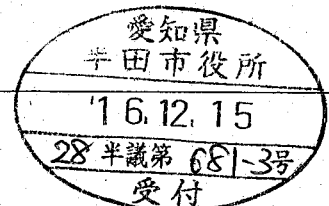 愛知県
半田市役所
'16.12.15
28半議第681-3号
受付